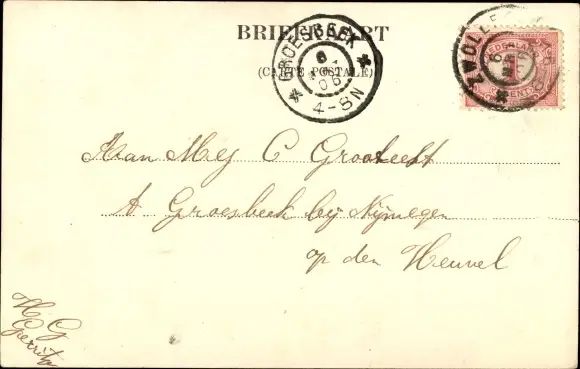 BRIEFKAART
(CARTE POSTALE)
GROESBEEK
6
06
4-8N
ZWOLLE
6
NEDERLAND
CENT
Aan Mej C Grooteelt
te Groesbeek bij Nijmegen
op den Heuvel
H G
Gerrits